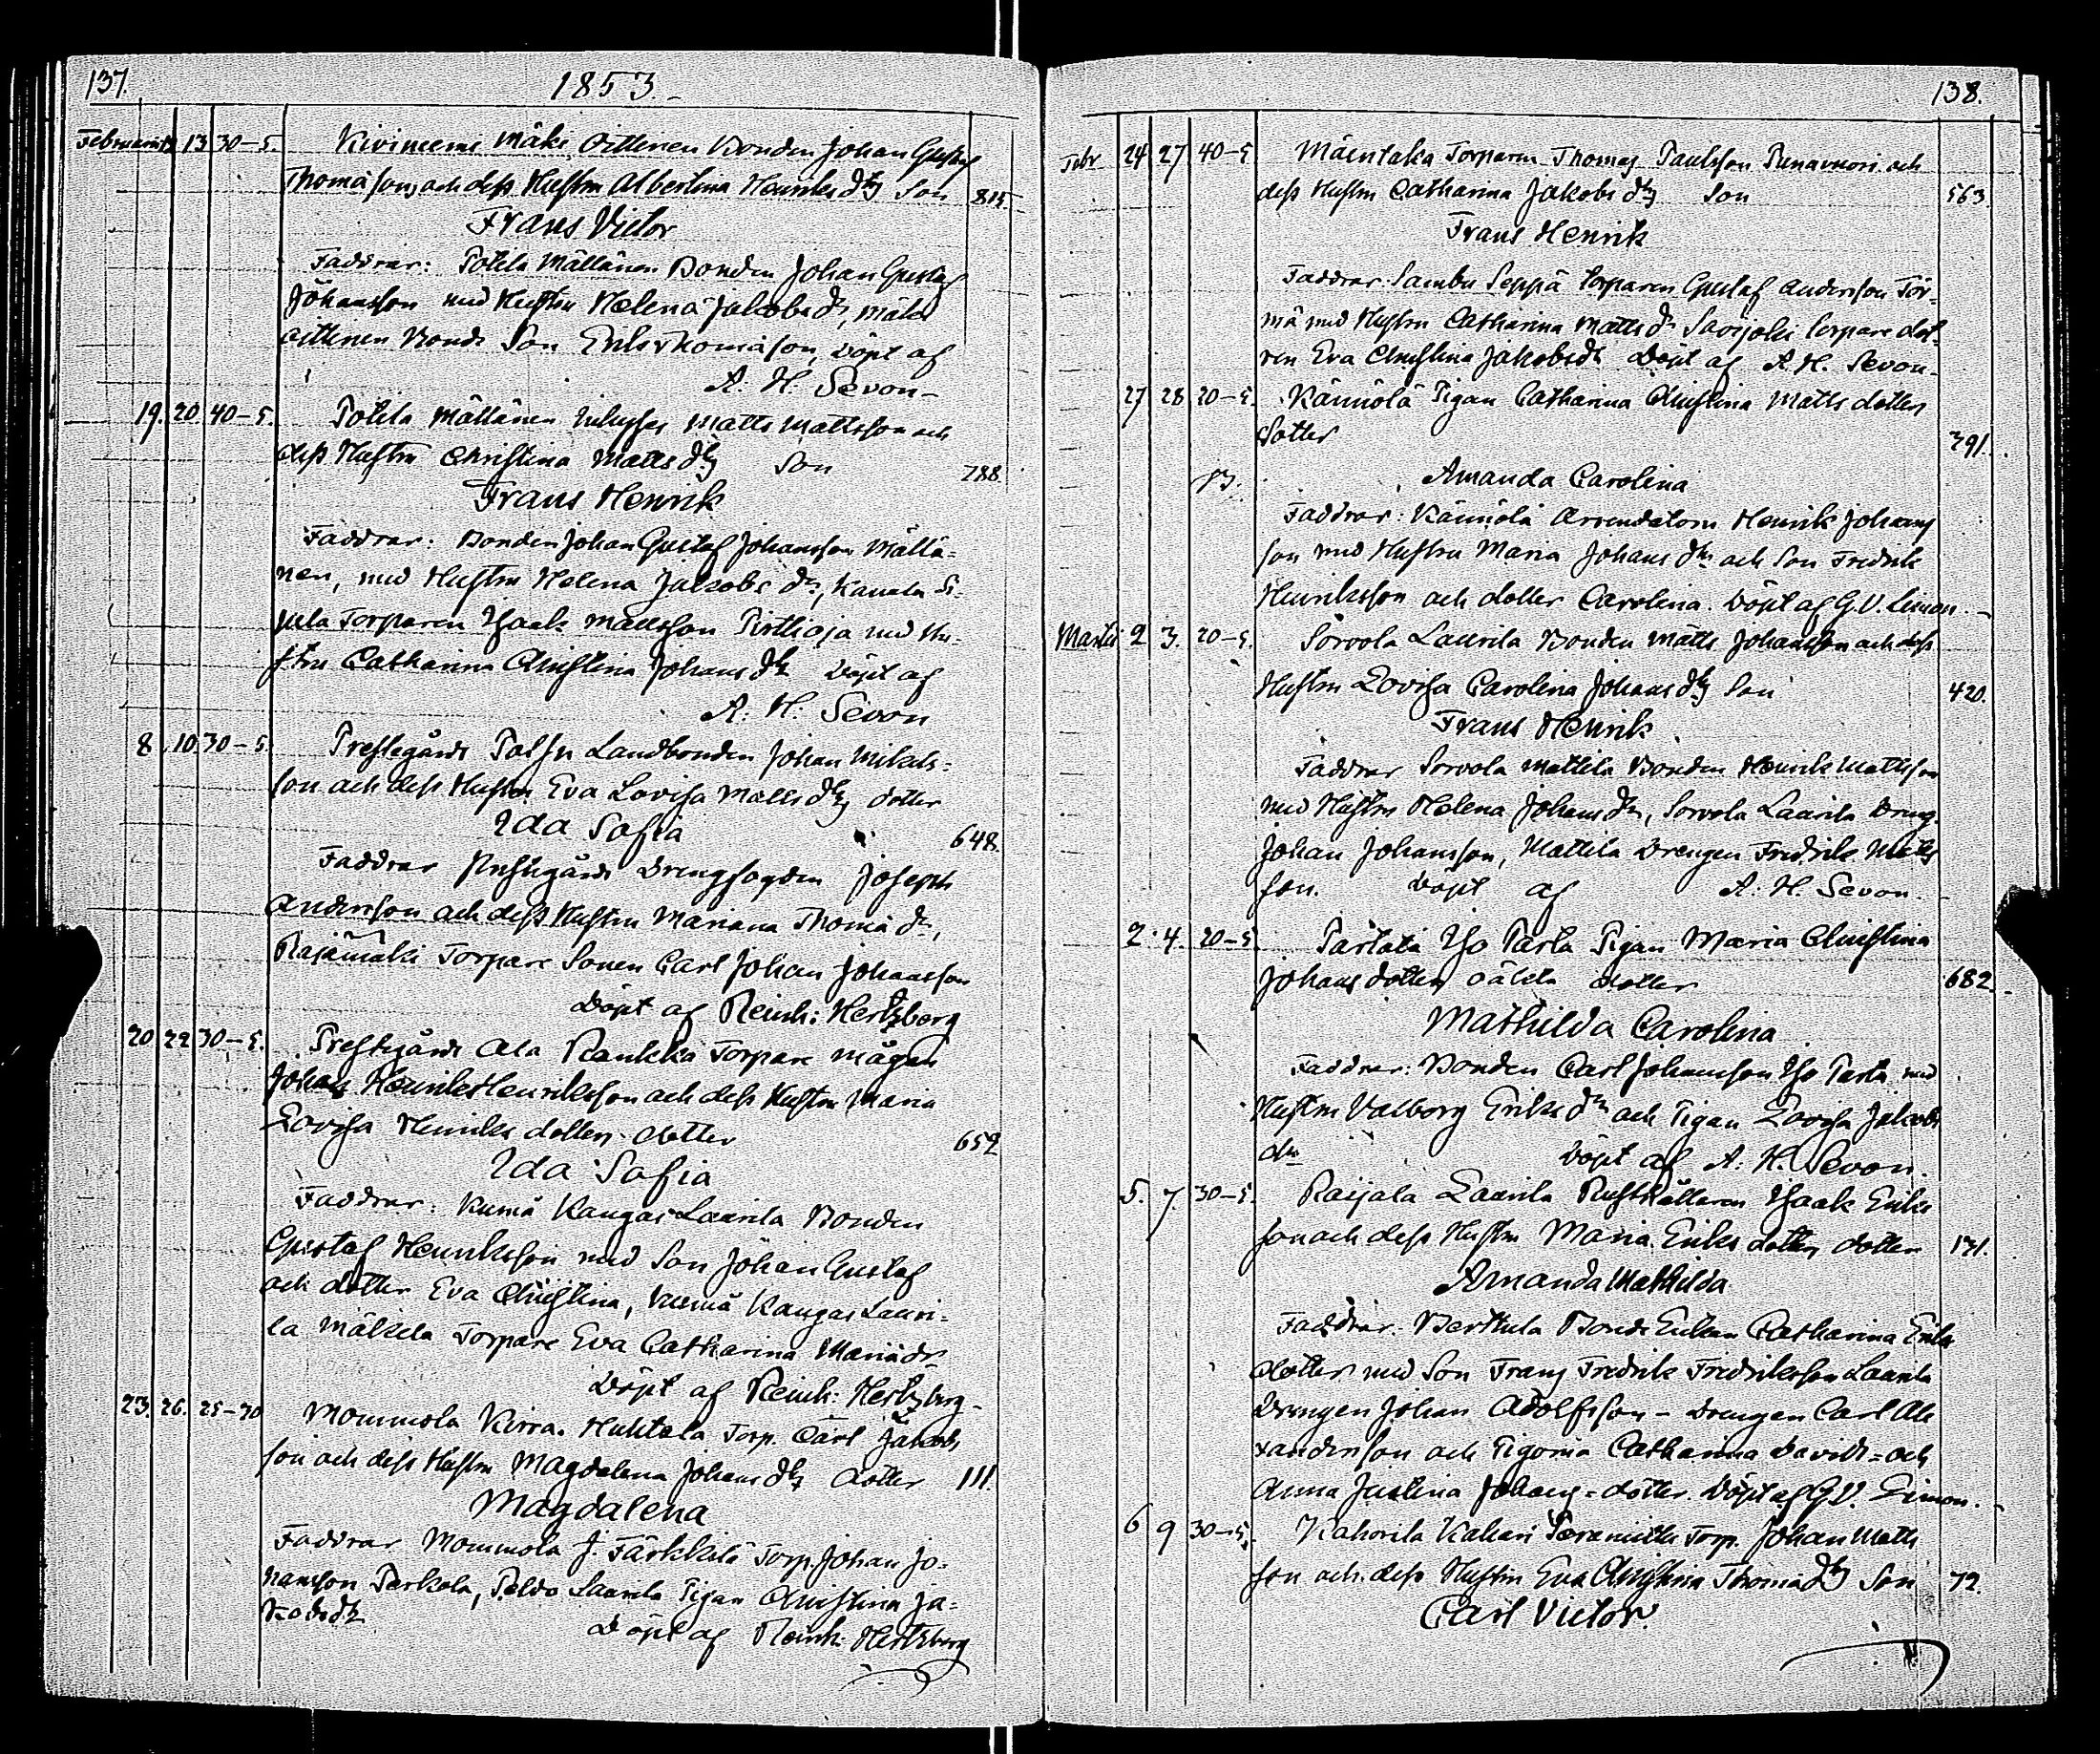 137.
1853.
Februarii 12 13 30-5. Kiviniemi Mäki Oittinen Bonden Johan Gustaf
Thomasson och dess Hustru Albertina Henriks dr Son 815.
Frans Victor
Faddrar: Potila Mällänen Bonden Johan Gustaf
Johansson med Hustru Helena Jakobs dr, Mäki
Oittinen Bonde Son Erik Thomasson, Döpt af
A. H. Sevon
19. 20. 40-5. Potila Mällänen Inhyses Matts Mattsson och
dess Hustru Christina Matts dr Son 788.
Frans Henrik
Faddrar: Bonden Johan Gustaf Johansson Mällä-
nen, med Hustru Helena Jakobs dr,
Torparen Isaak Mattsson Pirttioja med Hu-
stru Catharina Christina Johans dr Döpt af
A. H. Sevon
8 10 30-5. Prestegårds Landbonden Johan Mikels-
son och dess Hustru Eva Lovisa Matts dr dotter
Ida Sofia 648.
Faddrar Prestegårds Drengfogden Joseph
Andersson och dess Hustru Mariana Thomas dr,
Rajamäki Torpare Sonen Carl Johan Johansson
Döpt af Reinh: Hertzberg
20 22 30-5. Prestegårds Ala Raukka Torpare mågen
Johan Henrik Henriksson och dess Hustru Maria
Lovisa Henriks dotters dotter 652
Ida Sofia
Faddrar: Kangas Laurila Bonden
Gustaf Henriksson med Son Johan Gustaf
och dotter Eva Christina, Kangas Lauri-
la Mäkelä Torpare Eva Catharina
Döpt af Reinh: Hertzberg
23. 26. 25-30 Mommola Kirra Huhtala Torp. Carl Jakobs
son och dess Hustru Magdalena Johans dr dotter 111.
Magdalena
Faddrar Mommola J. Färkkilä Torp. Johan Jo-
hansson Perkola, Peldo Laurila Pigan Christina Ja-
kobs dr
Döpt af Reinh: Hertzberg
138.
Febr 24 27 40-5 Mäentaka Torparen Thomas Paulsson Punavuori och
dess Hustru Catharina Jakobs dr Son 563
Frans Henrik
Faddrar: Sambu Seppä Torparen Gustaf Andersson Tör-
mä med Hustru Catharina Matts dr Savijoki Torpare dot-
ren Eva Christina Jakobs dr Döpt af A. H. Sevon
27 28 20-5. Kännölä Pigan Catharina Christina Matts dotters
dotter 391.
Amanda Carolina
Faddrar: Kännölä Arrendatorn Henrik Johans
son med Hustru Maria Johans dr och Son Fredrik
Henriksson och dotter Carolina. Döpt af G. V. Limon.
Martii 2 3. 20-5. Sorvola Laurila Bonden Matts Johansson och dess
Hustru Lovisa Carolina Johans dr Son 420.
Frans Henrik
Faddrar Sorvola Mattila Bonden Henrik Mattsson
med Hustru Helena Johans dr, Sorvola Laurila Dreng.
Johan Johansson, Mattila Drengen Fredrik Matts
son. Döpt af A. H. Sevon.
2. 4. 20-5 Iso Parta Pigan Maria Christina
Johans dotters oäkta dotter 682
Mathilda Carolina
Faddrar: Bonden Carl Johansson Iso Parta med
Hustru Valborg Eriks dr och Pigan Lovisa Jakobs
dr Döpt af A. H. Sevon.
5. 7. 30-5. Raijala Laurila Rusthållaren Isaak Eriks
son och dess Hustru Maria Eriks dotters dotter 131.
Amanda Mathilda
Faddrar: Berttula Bonde Enkan Catharina Eriks
dotter med Son Frans Fredrik Fredriksson Laurila
Drengen Johan Adolfsson - Drengen Carl Ale
xandersson och Pigorna Catharina Davids- och
Anna Justina Johans- dotter. Döpt af G. V. Limon.
6 9 30-5. Kahorila Torp. Johan Matts
son och dess Hustru Eva Christina Thomas dr Son 72.
Carl Victor.